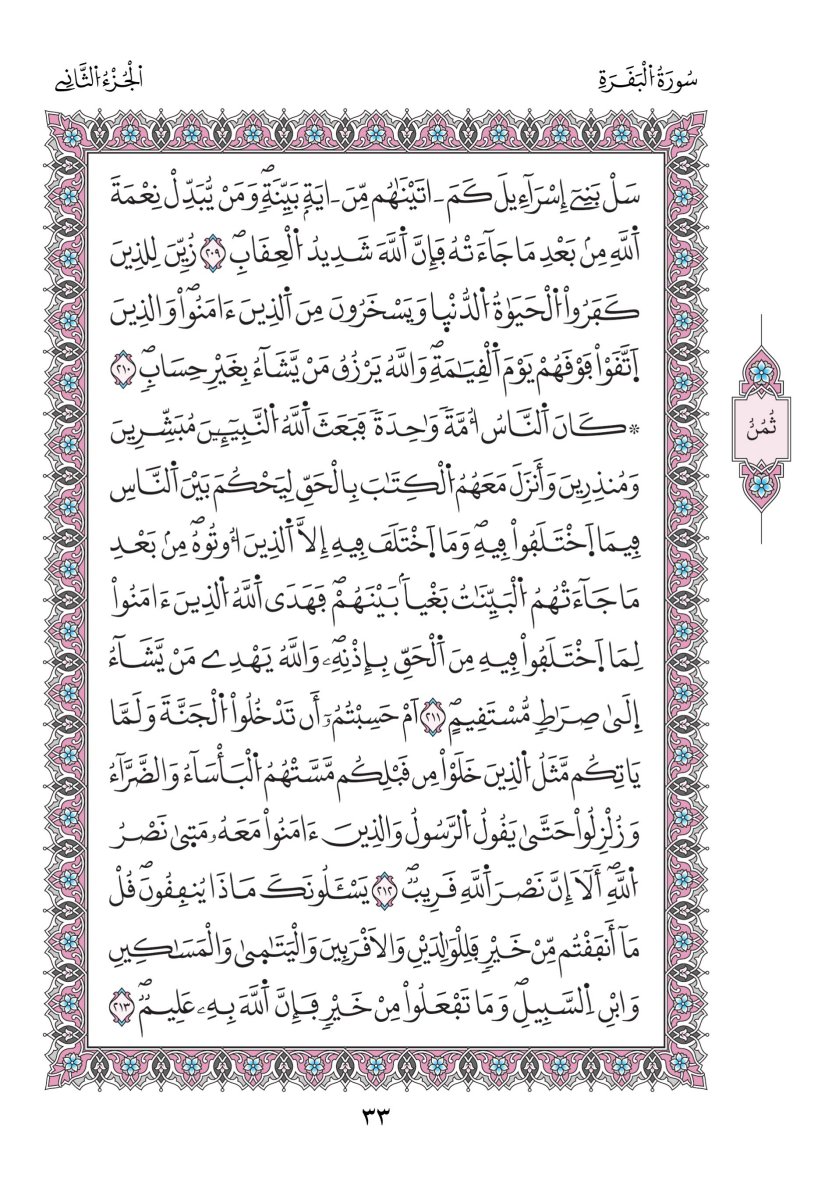 سُورَةُ اُ۬لْبَقَرَةِ
اُ۬لْجُزْءُ اُ۬لثَّانِے
سَلْ بَنِےٓ إِسْرَآءِيلَ كَمَ ـ اتَيْنَٰهُم مِّنَ ـ ايَةِۢ بَيِّنَةٖۖ وَمَنْ يُّبَدِّلْ نِعْمَةَ
اَ۬للَّهِ مِنۢ بَعْدِ مَا جَآءَتْهُ فَإِنَّ اَ۬للَّهَ شَدِيدُ اُ۬لْعِقَابِۖ ٢٠٩ زُيِّنَ لِلذِينَ
كَفَرُواْ اُ۬لْحَيَوٰةُ اُ۬لدُّنْي۪ا وَيَسْخَرُونَ مِنَ اَ۬لذِينَ ءَامَنُواْۖ وَالذِينَ
اَ۪تَّقَوْاْ فَوْقَهُمْ يَوْمَ اَ۬لْقِيَٰمَةِۖ وَاللَّهُ يَرْزُقُ مَنْ يَّشَآءُ بِغَيْرِ حِسَابٖۖ ٢١٠
* كَانَ اَ۬لنَّاسُ أُمَّةٗ وَٰحِدَةٗ فَبَعَثَ اَ۬للَّهُ اُ۬لنَّبِيٓـِٕۧنَ مُبَشِّرِينَ
وَمُنذِرِينَ وَأَنزَلَ مَعَهُمُ اُ۬لْكِتَٰبَ بِالْحَقِّ لِيَحْكُمَ بَيْنَ اَ۬لنَّاسِ
فِيمَا اَ۪خْتَلَفُواْ فِيهِۖ وَمَا اَ۪خْتَلَفَ فِيهِ إِلَّا اَ۬لذِينَ أُوتُوهُۖ مِنۢ بَعْدِ
مَا جَآءَتْهُمُ اُ۬لْبَيِّنَٰتُ بَغْياَۢ بَيْنَهُمْۖ فَهَدَى اَ۬للَّهُ اُ۬لذِينَ ءَامَنُواْ
لِمَا اَ۪خْتَلَفُواْ فِيهِ مِنَ اَ۬لْحَقِّ بِإِذْنِهِۦۖ وَاللَّهُ يَهْدِے مَنْ يَّشَآءُ
اِ۪لَىٰ صِرَٰطٖ مُّسْتَقِيمٍۖ ٢١١ اَمْ حَسِبْتُمُۥٓ أَن تَدْخُلُواْ اُ۬لْجَنَّةَ وَلَمَّا
يَاتِكُم مَّثَلُ اُ۬لذِينَ خَلَوْاْ مِن قَبْلِكُم مَّسَّتْهُمُ اُ۬لْبَأْسَآءُ وَالضَّرَّآءُ
وَزُلْزِلُواْ حَتَّىٰ يَقُولُ اُ۬لرَّسُولُ وَالذِينَ ءَامَنُواْ مَعَهُۥ مَت۪ىٰ نَصْرُ
اُ۬للَّهِۖ أَلَآ إِنَّ نَصْرَ اَ۬للَّهِ قَرِيبٞۖ ٢١٢ يَسْـَٔلُونَكَ مَاذَا يُنفِقُونَۖ قُلْ
مَآ أَنفَقْتُم مِّنْ خَيْرٖ فَلِلْوَٰلِدَيْنِ وَالَاقْرَبِينَ وَالْيَتَٰم۪ىٰ وَالْمَسَٰكِينِ
وَابْنِ اِ۬لسَّبِيلِۖ وَمَا تَفْعَلُواْ مِنْ خَيْرٖ فَإِنَّ اَ۬للَّهَ بِهِۦ عَلِيمٞۖ ٢١٣
ثُمُنُ
٣٣